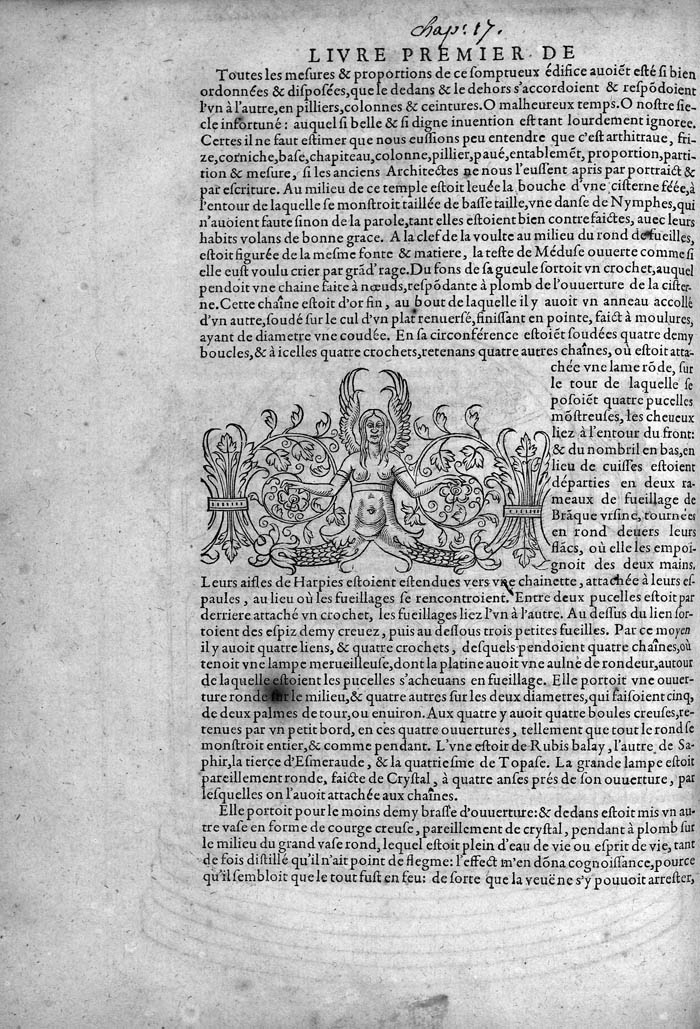 chap: 17.
LIVRE PREMIER DE
Toutes les meſures & proportions de ce ſomptueux édifice auoiẽt eſté ſi bien
ordonnées & diſpoſées, que le dedans & le dehors s'accordoient & reſpõdoient
l'vn à l'autre, en pilliers, colonnes & ceintures. O malheureux temps. O noſtre ſie-
cle infortuné: auquel ſi belle & ſi digne inuention eſt tant lourdement ignoree.
Certes il ne faut eſtimer que nous euſſions peu entendre que c'eſt arthitraue, fri-
ze, corniche, baſe, chapiteau, colonne, pillier, paué, entablemẽt, proportion, parti-
tion & meſure, ſi les anciens Architectes ne nous l'euſſent apris par portraict &
par eſcriture. Au milieu de ce temple eſtoit leuée la bouche d'vne ciſterne féée, à
l'entour de laquelle ſe monſtroit taillée de baſſe taille, vne danſe de Nymphes, qui
n'auoient faute ſinon de la parole, tant elles eſtoient bien contrefaictes, auec leurs
habits volans de bonne grace. A la clef de la voulte au milieu du rond de fueilles,
eſtoit figurée de la meſme fonte & matiere, la teſte de Méduſe ouuerte comme ſi
elle euſt voulu crier par grãd' rage. Du fons de ſa gueule ſortoit vn crochet, auquel
pendoit vne chaine faite à nœuds, reſpõdante à plomb de l'ouuerture de la ciſter-
ne. Cette chaîne eſtoit d'or fin, au bout de laquelle il y auoit vn anneau accollé
d'vn autre, ſoudé ſur le cul d'vn plat renuerſé, finiſſant en pointe, faict à moulures,
ayant de diametre vne coudée. En ſa circonférence eſtoiẽt ſoudées quatre demy
boucles, & à icelles quatre crochets, retenans quatre autres chaînes, où eſtoit atta-
chée vne lame rõde, ſur
le tour de laquelle ſe
poſoiẽt quatre pucelles
mõſtreuſes, les cheueux
liez à l'entour du front:
& du nombril en bas, en
lieu de cuiſſes eſtoient
départies en deux ra-
meaux de fueillage de
Brãque vrſine, tournées
en rond deuers leurs
flãcs, où elle les empoi-
gnoit des deux mains.
Leurs aiſles de Harpies eſtoient eſtendues vers vne chainette, attachée à leurs eſ-
paules, au lieu où les fueillages ſe rencontroient. Entre deux pucelles eſtoit par
derriere attaché vn crochet, les fueillages liez l'vn à l'autre. Au deſſus du lien ſor-
toient des eſpiz demy creuez, puis au deſſous trois petites fueilles. Par ce moyen
il y auoit quatre liens, & quatre crochets, deſquels pendoient quatre chaînes, où
tenoit vne lampe merueilleuſe, dont la platine auoit vne aulne de rondeur, autour
de laquelle eſtoient les pucelles s'acheuans en fueillage. Elle portoit vne ouuer-
ture ronde ſur le milieu, & quatre autres ſur les deux diametres, qui faiſoient cinq,
de deux palmes de tour, ou enuiron. Aux quatre y auoit quatre boules creuſes, re-
tenues par vn petit bord, en ces quatre ouuertures, tellement que tout le rond ſe
monſtroit entier, & comme pendant. L'vne eſtoit de Rubis balay, l'autre de Sa-
phir, la tierce d'Eſmeraude, & la quatrieſme de Topaſe. La grande lampe eſtoit
pareillement ronde, faicte de Cryſtal, à quatre anſes prés de ſon ouuerture, par
leſquelles on l'auoit attachée aux chaînes.
Elle portoit pour le moins demy braſſe d'ouuerture: & dedans eſtoit mis vn au-
tre vaſe en forme de courge creuſe, pareillement de cryſtal, pendant à plomb ſur
le milieu du grand vaſe rond, lequel eſtoit plein d'eau de vie ou eſprit de vie, tant
de fois diſtillé qu'il n'ait point de flegme: l'effect m'en dõna cognoiſſance, pource
qu'il ſembloit que le tout fuſt en feu: de ſorte que la veuë ne s'y pouuoit arreſter,